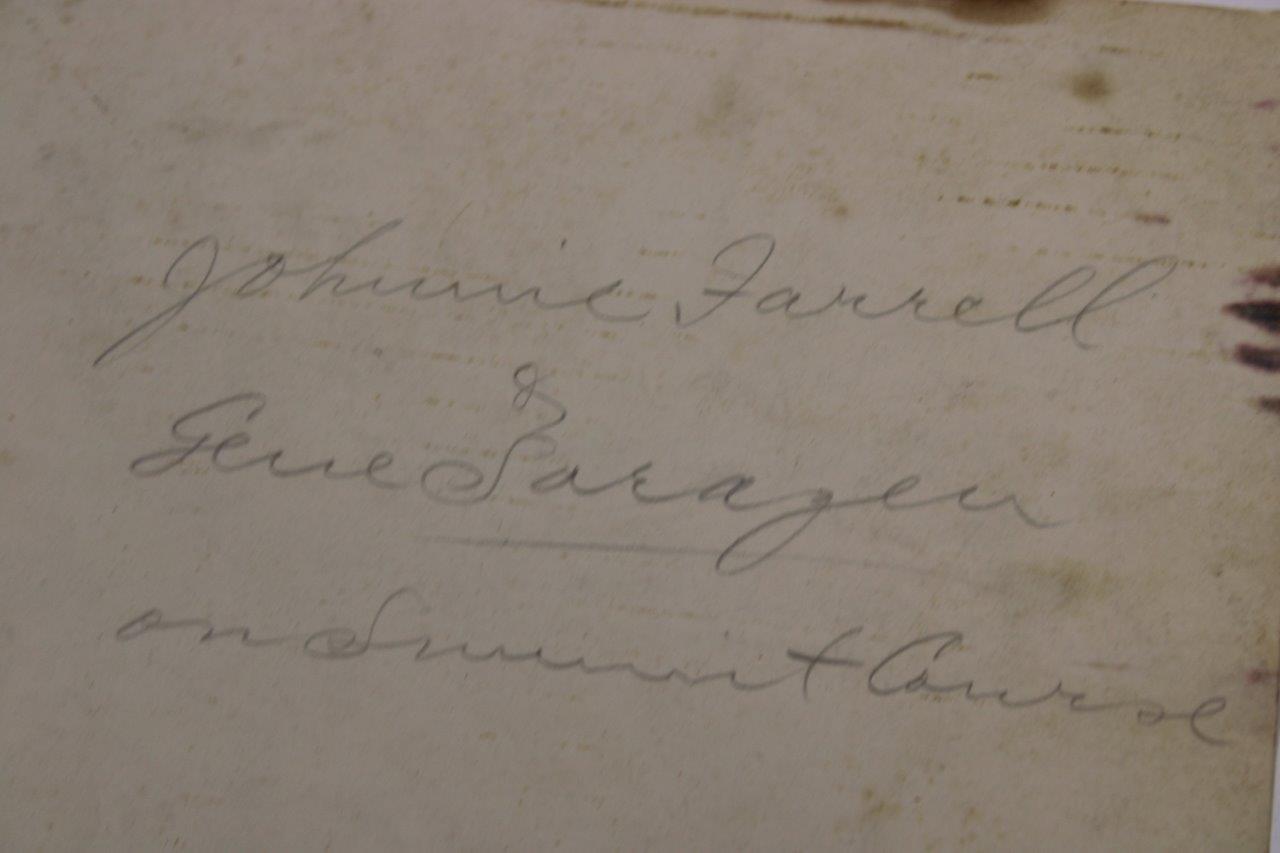 Johnnie Farrell
&
Gene Sarazen
on Summit Course